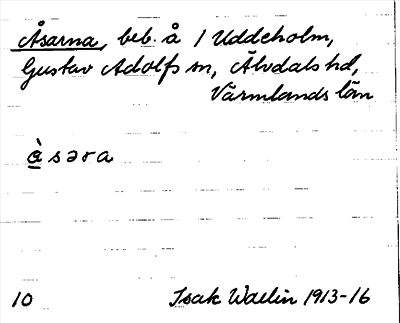 Åsarna, beb. å 1 Uddeholm,
Gustav Adolfs sn, Älvdals hd,
Värmlands län
å̀səra
10
Isak Waelin 1913-16